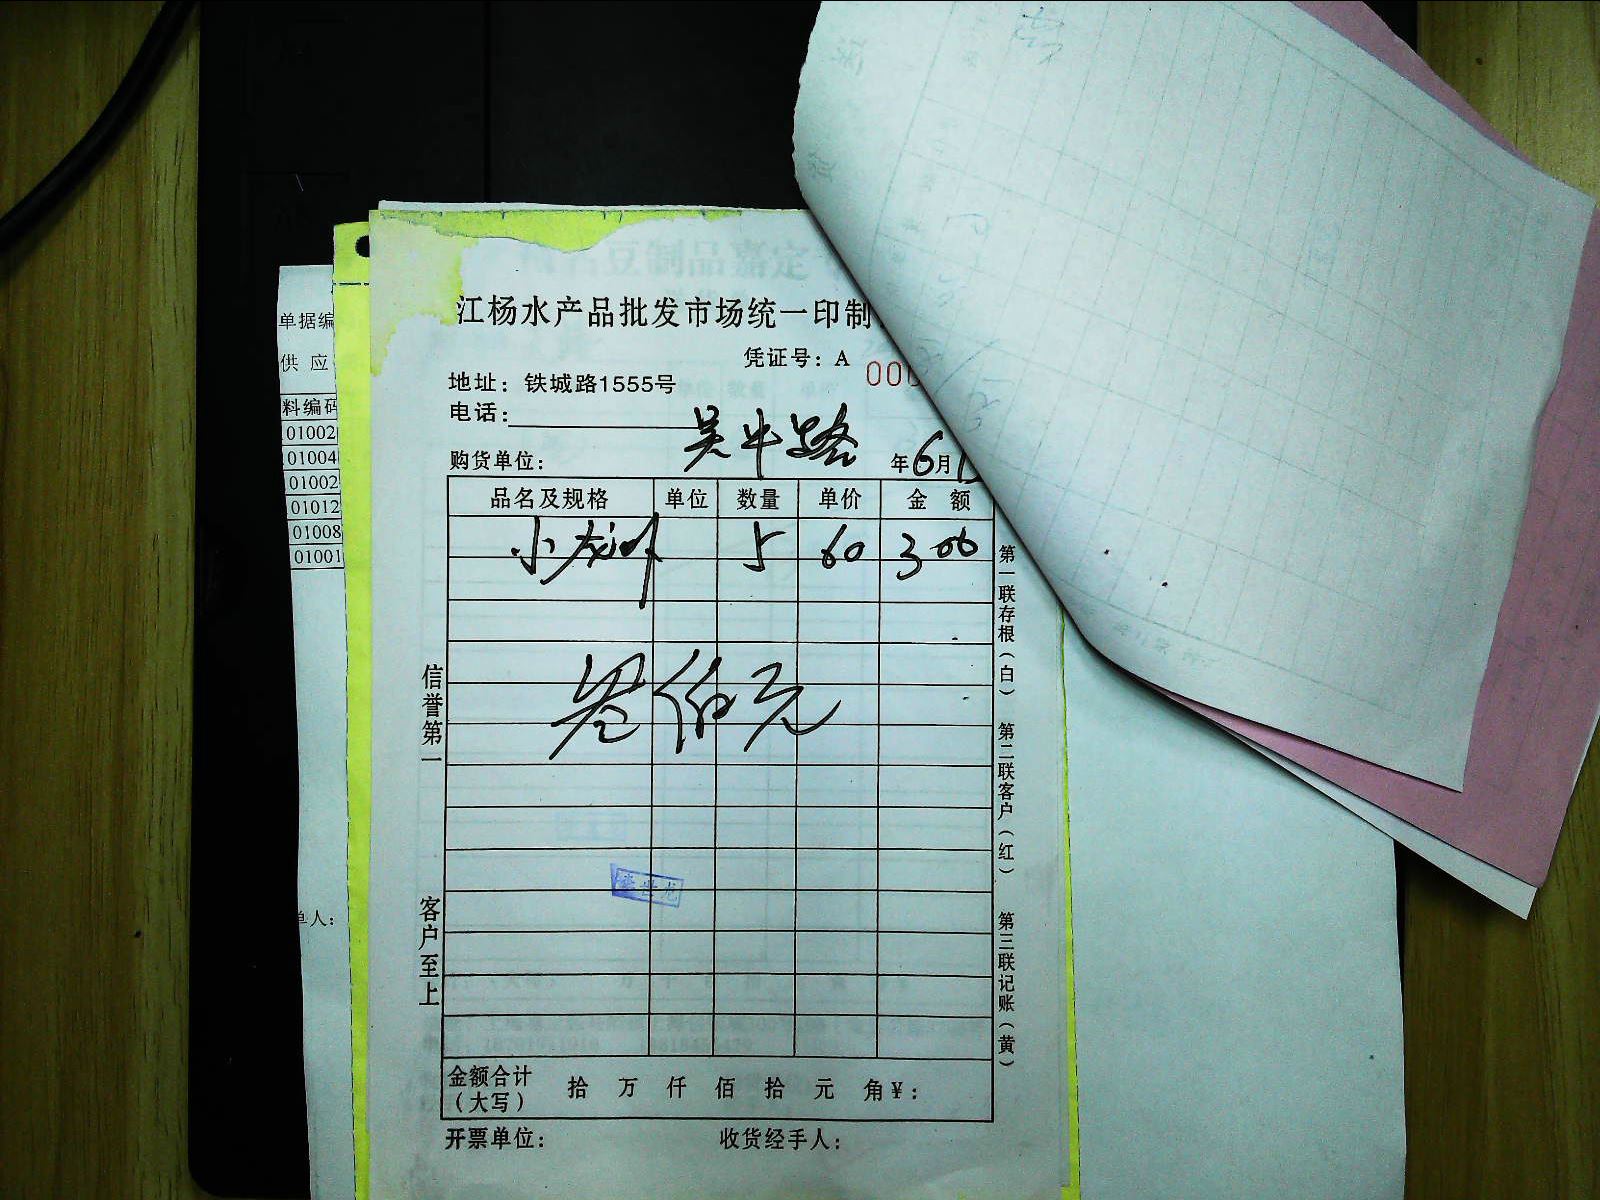 江杨水产品批发市场统一印制
凭证号：A 000
地址：铁城路1555号
电话：
购货单位： 吴中路 年6月1
品名及规格 单位 数量 单价 金 额
小龙虾 5 60 300
叁佰元
信誉第一
客户至上
第一联存根（白）
第二联客户（红）
第三联记账（黄）
金额合计（大写） 拾 万 仟 佰 拾 元 角￥：
开票单位： 收货经手人：
单据编
供 应
料编码
01002
01004
01002
01012
01008
01001
单人：